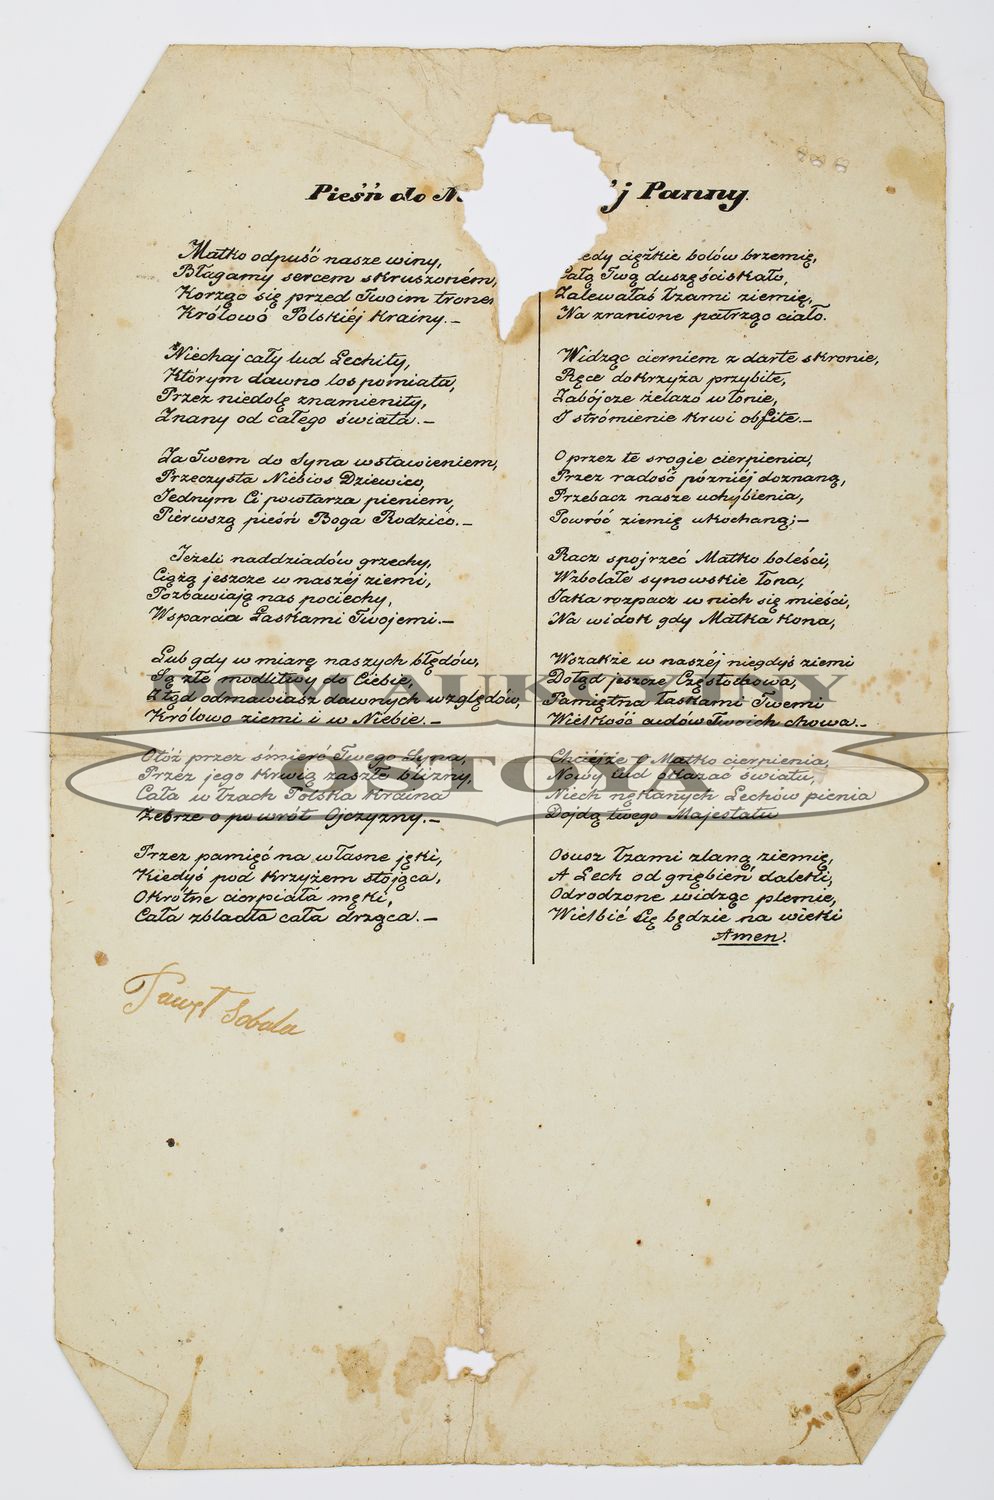 Pieśń do N
'j Panny.
Matko odpuść nasze winy,
Błagamy sercem skruszoném,
Korząc się przed Twoim trone
Królowó Polskiéj Krainy.—
Niechaj cały lud Lechity,
Którym dawno los pomiata,
Przez niedolę znamienity,
Znany od całego świata.—
Za Twem do Syna wstawieniem,
Przeczysta Niebios Dziewico,
Jednym Ci powtarza pieniem,
Piérwszą pieśń Boga Rodzico.—
Jeżeli naddziadów grzechy,
Ciążą jeszcze w naszéj ziemi,
Pozbawiają nas pociechy,
Wsparcia Łaskami Twojemi.—
Lub gdy w miarę naszych błędów,
Są złe modlitwy do Ciebie,
Ztąd odmawiasz dawnych względów,
Królowo ziemi i w Niebie.—
Otóż przez śmierć Twego Syna,
Przéz jego krwią zaszłe blizny,
Cała w łzach Polska Kraina
Żebrze o powrót Ojczyzny.—
Przez pamięć na własne jęki,
Kiedyś pod krzyżem stojąca,
Okrótne cierpiała męki,
Cała zbladła cała drżąca.—
edy ciężkie bolów brzemię,
Całą Twą duszę ściskało,
Zalewałaś łzami ziemię,
Na zranione patrząc ciało.
Widząc cierniem zdarte skronie,
Ręce do Krzyża przybite,
Zabójcze żelazo w łonie,
I strómienie krwi obfite.—
O przez te srogie cierpienia,
Przez radość późniéj doznaną,
Przebacz nasze uchybienia,
Powróć ziemię ukochaną;—
Racz spojrzeć Matko boleści,
Wzbolałe synowskie łona,
Jaka rozpacz w nich się mieści,
Na widok gdy Matka kona,
Wszakże w naszéj niegdyś ziemi
Dotąd jeszcze Częstochowa,
Pamiętna łaskami Twemi
Wielkość cudów Twoich chowa.—
Chciéjże O Matko cierpienia,
Nowy cud okazać światu,
Niech nękanych Lechów pienia
Dojdą twego Majestatu
Osusz łzami zlaną ziemię,
A Lech od gnębień daleki,
Odrodzone widząc plemie,
Wielbić Cię będzie na wieki
Amen.
Paweł Sobala
DOM AUKCYJNY
OSTOYA